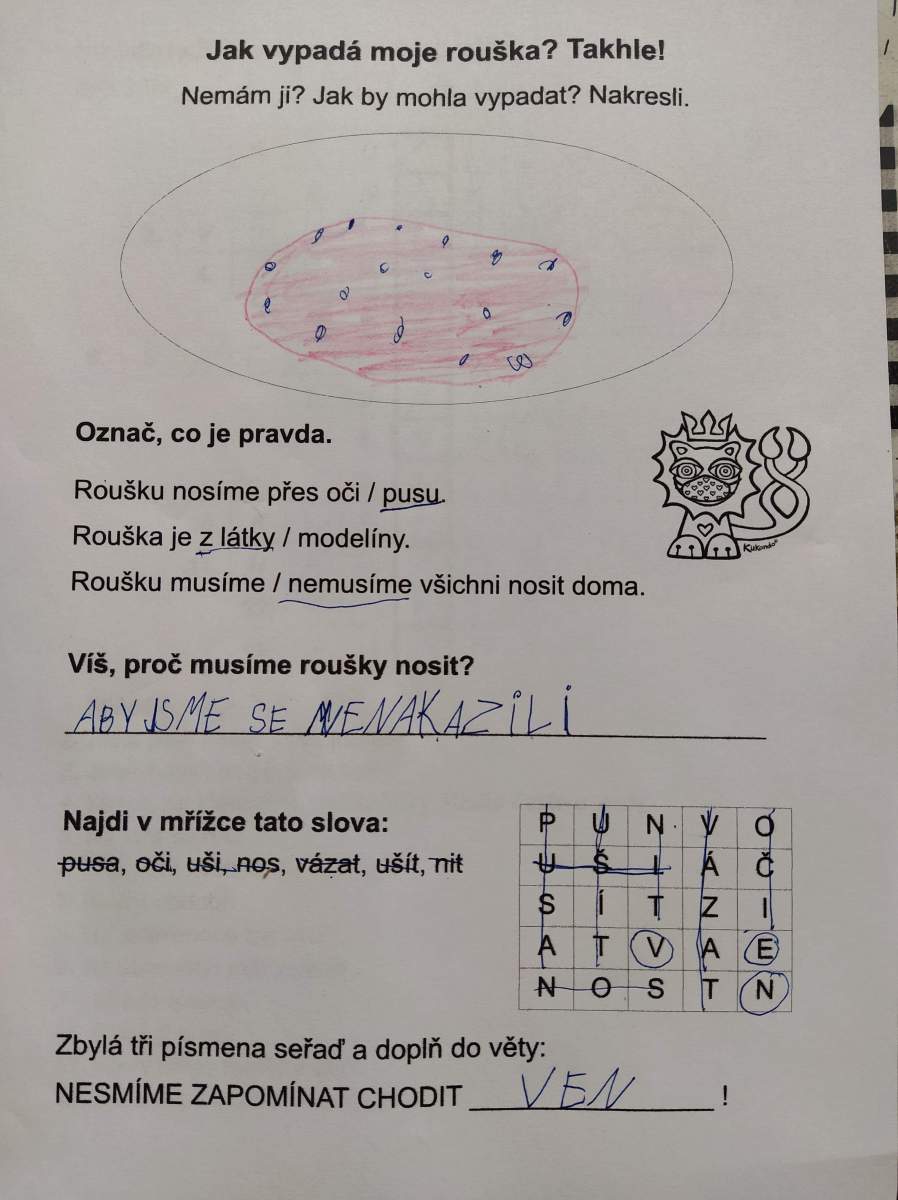 Jak vypadá moje rouška? Takhle!
Nemám ji? Jak by mohla vypadat? Nakresli.
Označ, co je pravda.
Roušku nosíme přes oči / pusu.
Rouška je z látky / modelíny.
Roušku musíme / nemusíme všichni nosit doma.
Kukondo
Víš, proč musíme roušky nosit?
ABY JSME SE NENAKAZILI
Najdi v mřížce tato slova:
pusa, oči, uši, nos, vázat, ušít, nit
P U N V O
U Š I Á Č
S Í T Z I
A T V A E
N O S T N
Zbylá tři písmena seřaď a doplň do věty:
NESMÍME ZAPOMÍNAT CHODIT VEN !